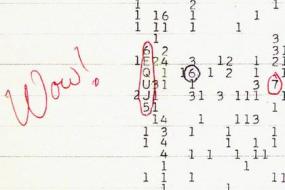 1 2 1 3
1 16 1 1
1 11 1
1 3
6 2 31
1 E24 3 12 1 21
Q 1 16 1 2 1 1
U 31 1 3 7
2 J 1 31 3 111 1
5 1
14 1 113
1 3 1 1 1
1 4 1 1 1 11
1
1 4 1
1 1 1 11
1
Wow!